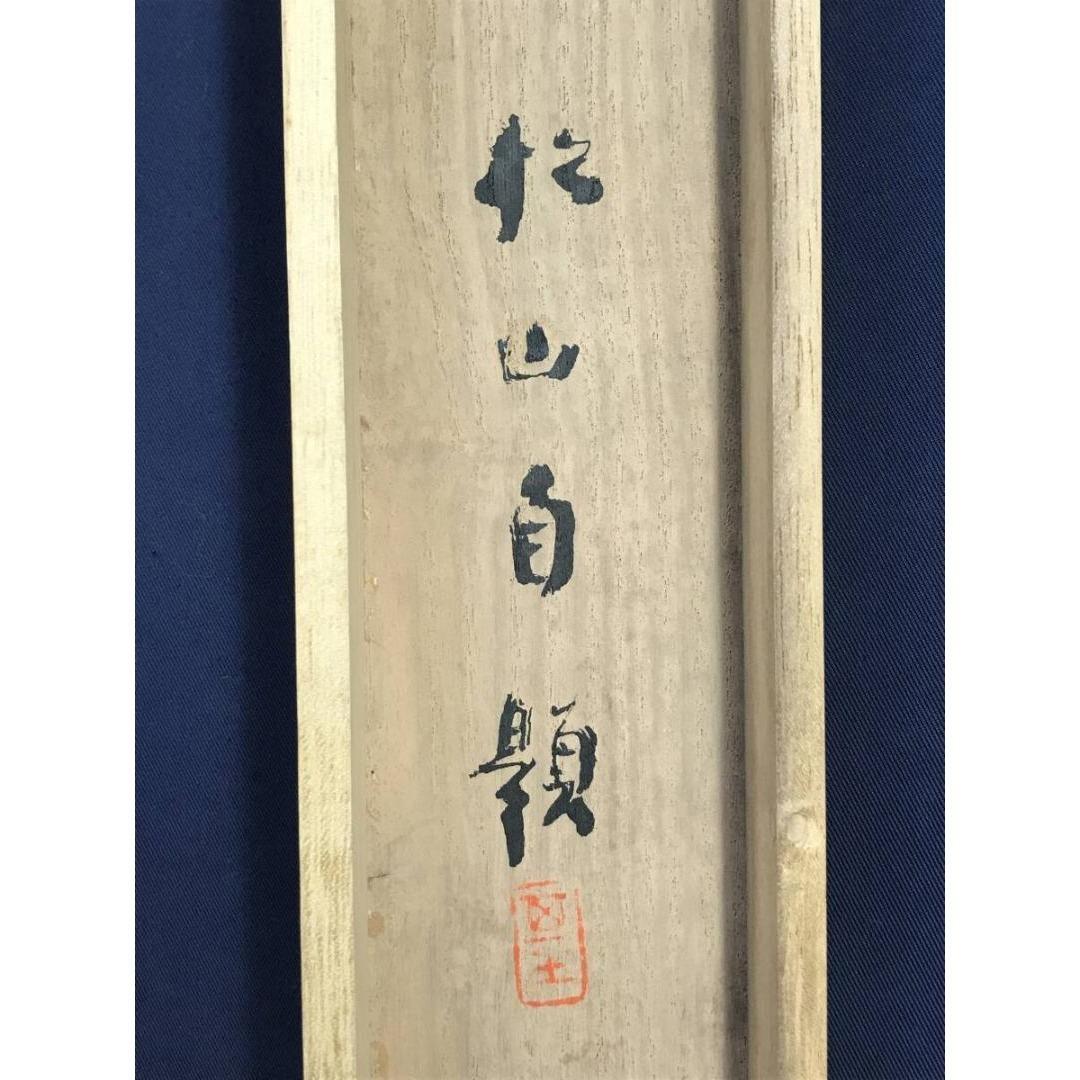 松山自題